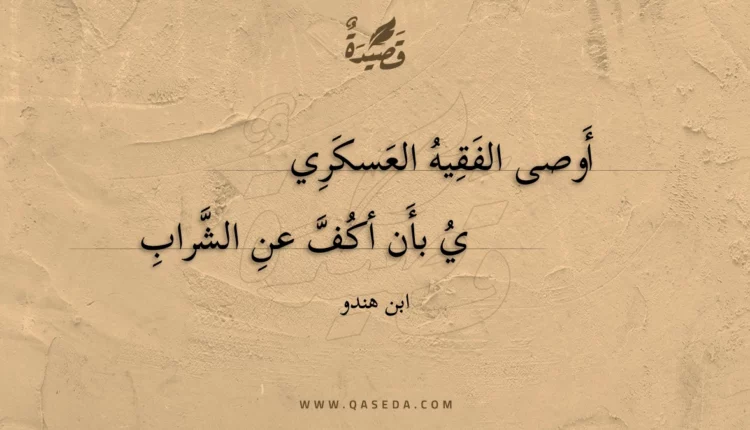 قَصِيْدَةٌ
أَوصى الفَقِيهُ العَسكَرِي
يُ بأَن أكُفَّ عنِ الشَّرابِ
ابن هندو
WWW.QASEDA.COM